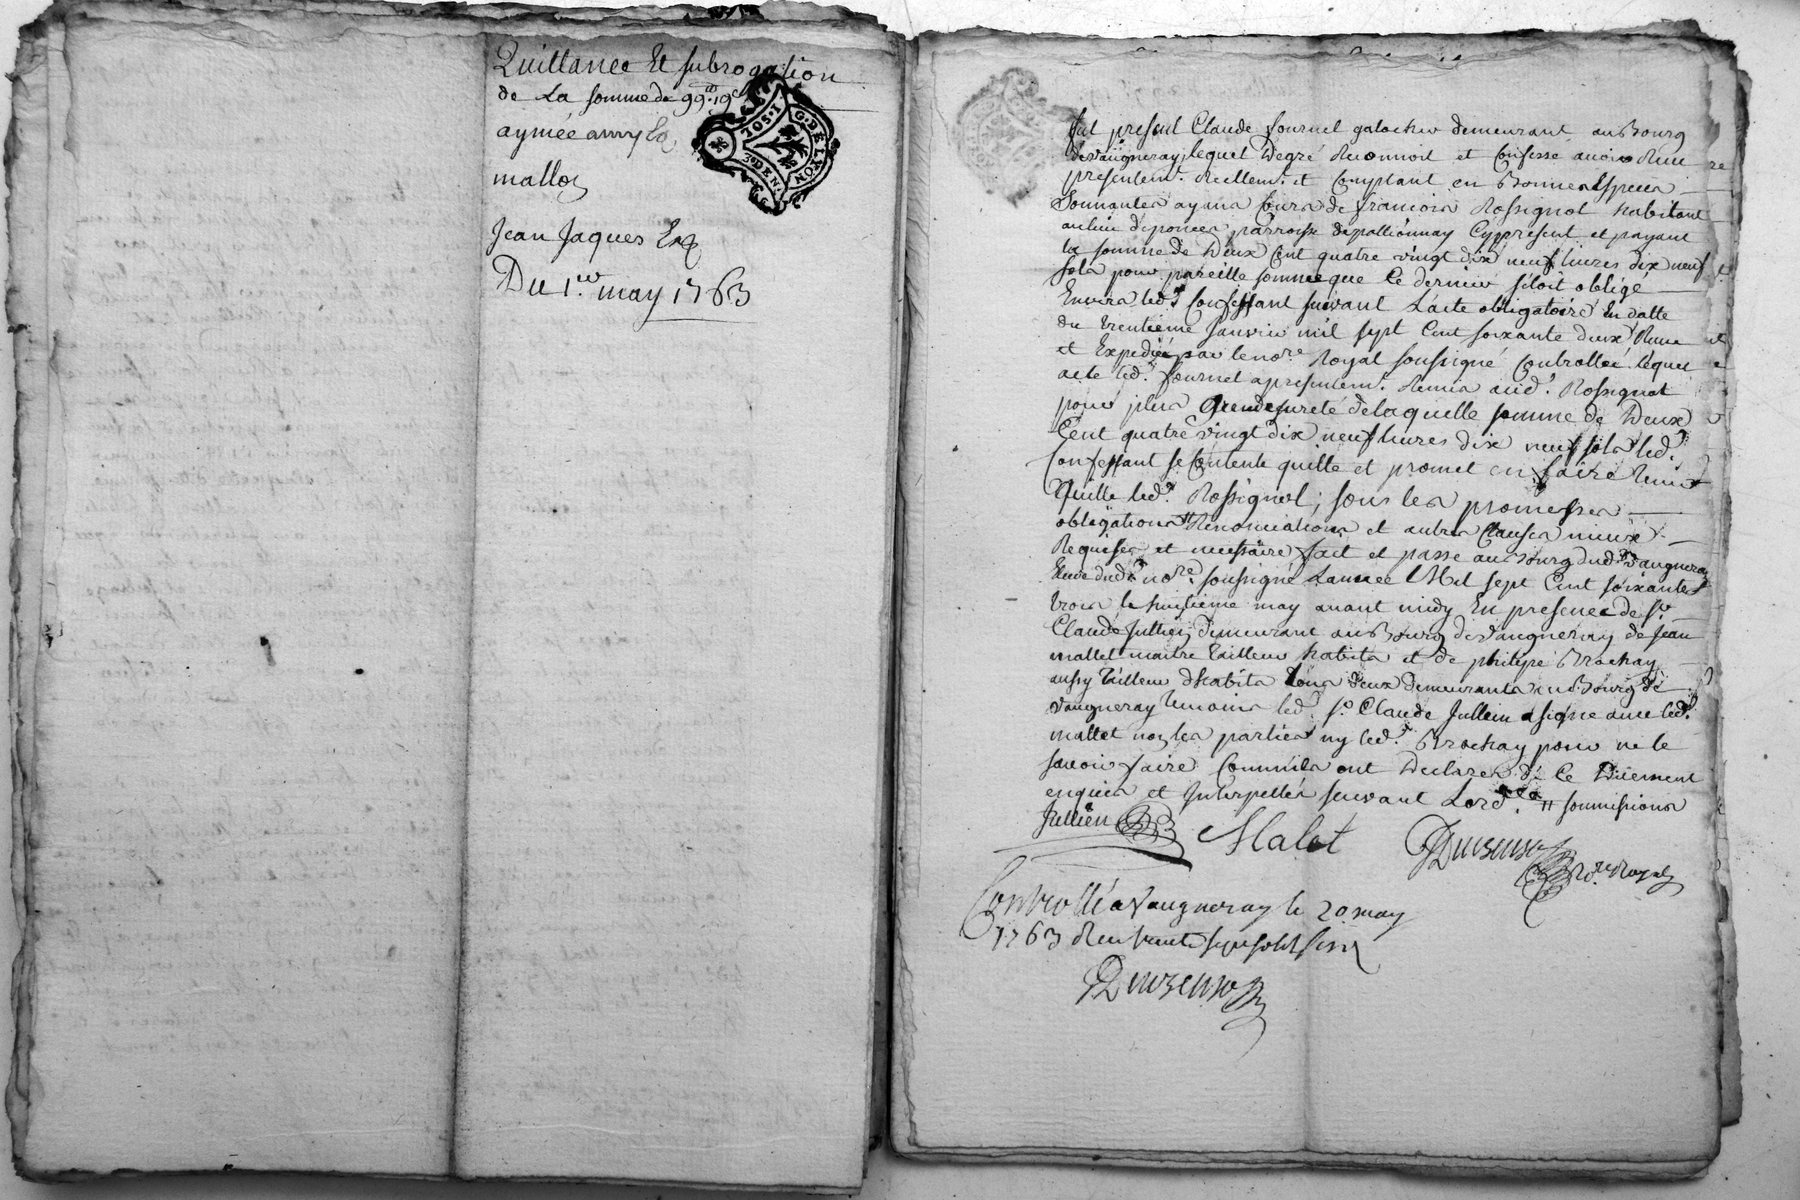 Quittance Et subrogation
de La somme de 99.tt 19
aymée
mallo
Jean Jaques
Du 1.er may 1763
G. DE LYON
3.D.EN.
fut present Claude fournel galocher demeurant au Bourg
de Vaugneray, lequel De gré Reconnoit et Confesse avoir Receu
presentem.t Reellem.t et Comptant en Bonnes Especes
Sonnantes ayans Cours de francois Rossignol habitant
au lieu de ponces parroisse de pollionnay Cy present et payant
la somme de Deux Cent quatre vingt dix neuf livres dix neuf
sols pour pareille somme que Ce dernier s'étoit obligé
Envers led.t Confessant suivant L'acte obligatoire En datte
du trentieme Janvier mil sept Cent soixante deux Receu
et Expedié par le no.re Royal soussigné Controllée lequel
acte led.t fournel a presentem.t Remis aud.t Rossignol
pour plus Grande sureté de laquelle somme de Deux
Cent quatre vingt dix neuf livres dix neuf sols led.t
Confessant se Contente quitte et promet en faire tenir
quitte led.t Rossignol, sous les promesses
obligations # Renonciations et autres Clauses mieux
Requises et necessaire fait et passé au Bourg dud.t Vaugneray
Etude dud.t no.re soussigné L'année Mil sept Cent soixante
trois le huitieme may avant midy En presence de S.r
Claude Jullien demeurant au Bourg de Vaugneray de Jean
mallet maitre tailleur habits et de philipe Brochay
aussy tailleur d'habits tous deux demeurants au Bourg de
Vaugneray temoins led. S.r Claude Jullien a signé avec led.t
mallet non les parties ny led.t Brochay pour ne le
savoir faire Comm'ils ont Declarés de Ce Duement
enquis et Interpellés suivant L'ord.ce # soumissions
Jullien Malet
No.re Royal
Controllé a Vaugneray le 20 may
1763 Receu